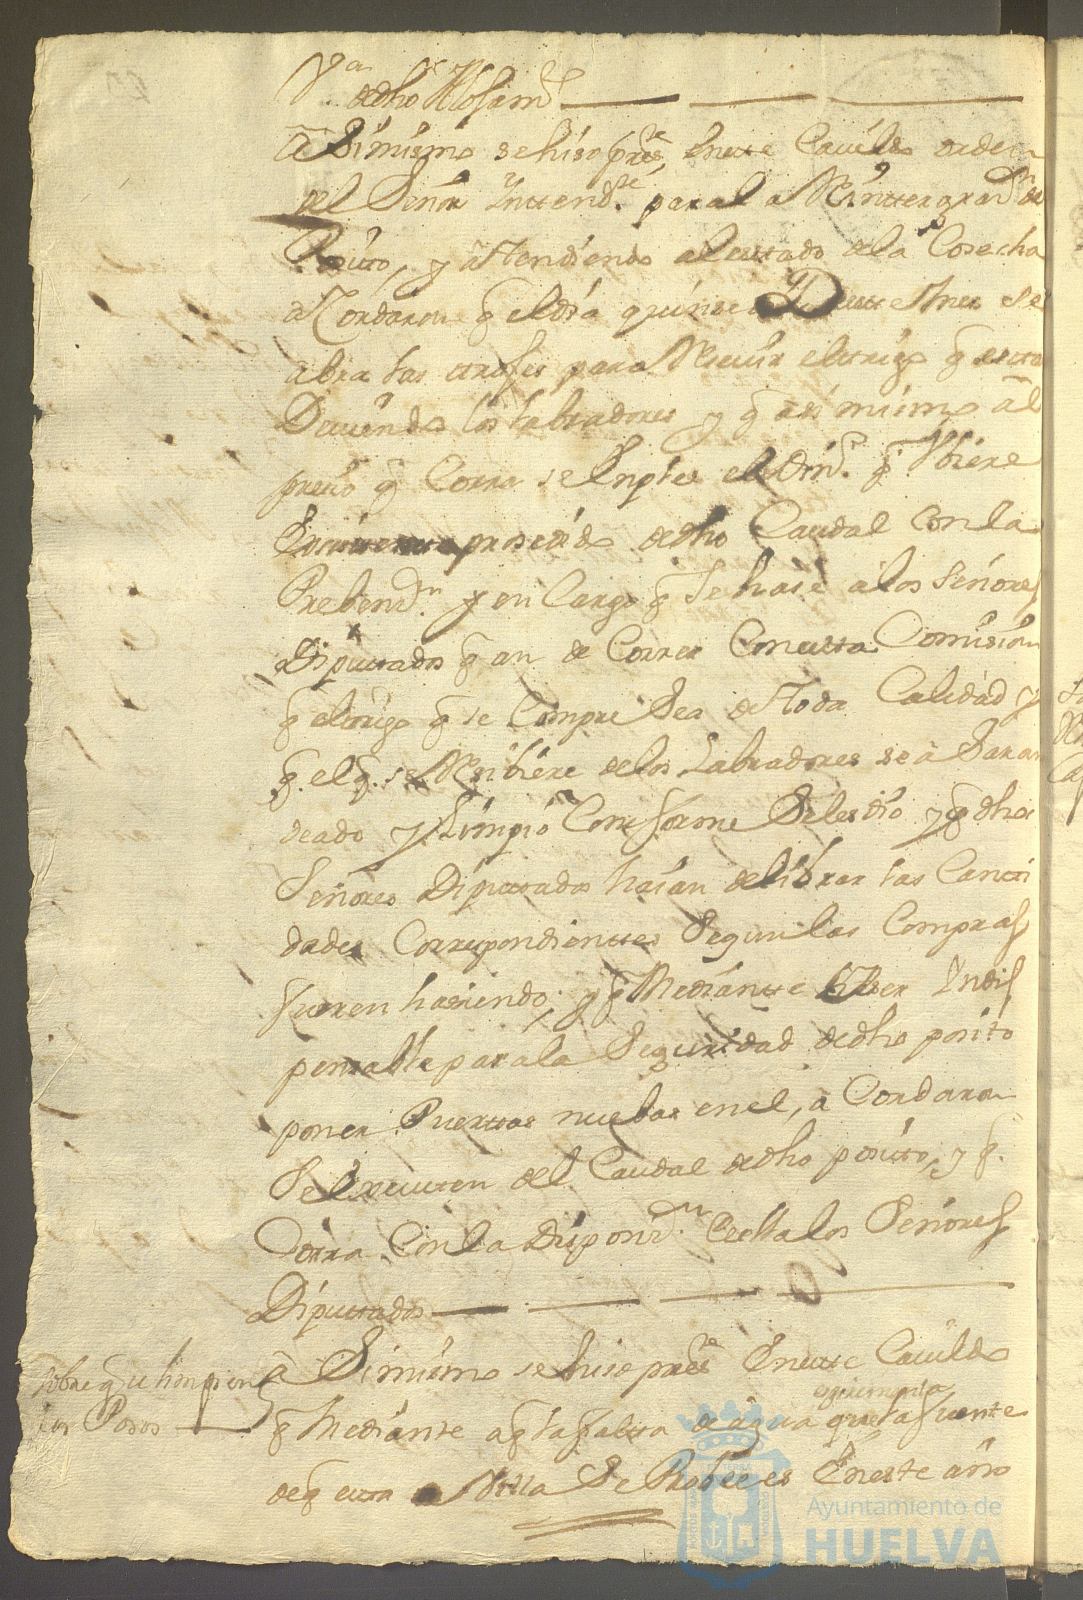 Va dedho Rosam.to
a Simismo sehiso press.te Eneste Cavildo orden
del Señor Inttend.te para la Reinttegras.on de
Posito, y attendiendo alestado dela Cosecha
acordaron q el dia quinse Deste Mes se
abra las troxes para Resivir eltrigo q estan
Deviendo los labradores y q asimismo al
presio q Corra se Enplee el Din.o q Ubiere
prosedido dedho Caudal Con la
Prebens.n y en Cargo q se hase alos Señores
Diputados q an de Correr Conesta Comision
q eltrigo q se Compre Sea de toda Calidad y
q el q se Resibiere delos Labradores sea Saran
deado y Limpio Conforme Selesdio y q dhos
Señores Diputados haian de librar las Canti
dades Correspondientes Segun las Compras
fueren hasiendo; y q Mediante haser Indis
pensable para la Seguridad dedho posito
poner Puertas nuebas en el, a Cordaron
Se Executen del Caudal dedho posito, y q
Corra Con la Dispons.n Ecctta los Señores
Diputados
Sobre q se limpien
los Posos
a Simismo se hiso pres.te Eneste Cavildo
q Mediante aq la falta de agua q esperimenta la fuente
de q esta Villa Se Probee es Eneste año
Ayuntamiento de
HUELVA